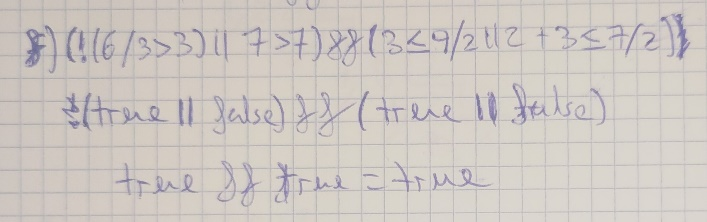 f) (!(6/3>3) || 7>7) && (3≤9/2 || 2+3≤7/2)
(true || false) && (true || false)
true && true = true